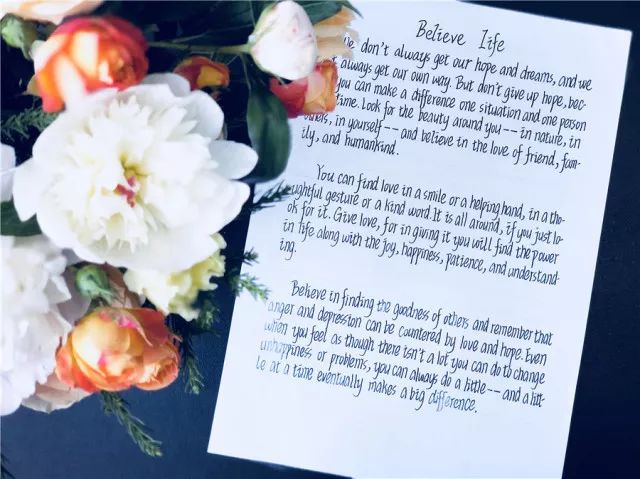 Believe Life
We don't always get our hope and dreams, and we
always get our own way. But don't give up hope, bec-
you can make a difference one situation and one person
time. Look for the beauty around you -- in nature, in
others, in yourself -- and believe in the love of friend, fam-
ily, and humankind.
You can find love in a smile or a helping hand, in a tho-
ughtful gesture or a kind word. It is all around, if you just lo-
ok for it. Give love, for in giving it you will find the power
in life along with the joy, happiness, patience, and understand-
ing.
Believe in finding the goodness of others and remember that
anger and depression can be countered by love and hope. Even
when you feel as though there isn't a lot you can do to change
unhappiness or problems, you can always do a little -- and a litt-
le at a time eventually makes a big difference.